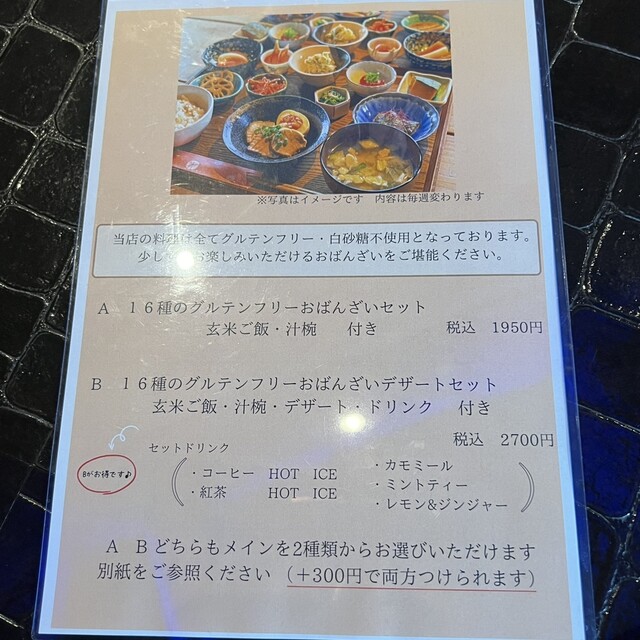 ※写真はイメージです　内容は毎週変わります
当店の料理は全てグルテンフリー・白砂糖不使用となっております。
少し お楽しみいただけるおばんざいをご堪能ください。
A　１６種のグルテンフリーおばんざいセット
玄米ご飯・汁椀　付き　税込　1950円
B　１６種のグルテンフリーおばんざいデザートセット
玄米ご飯・汁椀・デザート・ドリンク　付き
税込　2700円
Bがお得です♪
セットドリンク
・コーヒー　HOT　ICE
・紅茶　HOT　ICE
・カモミール
・ミントティー
・レモン&ジンジャー
A　Bどちらもメインを2種類からお選びいただけます
別紙をご参照ください　（＋300円で両方つけられます）